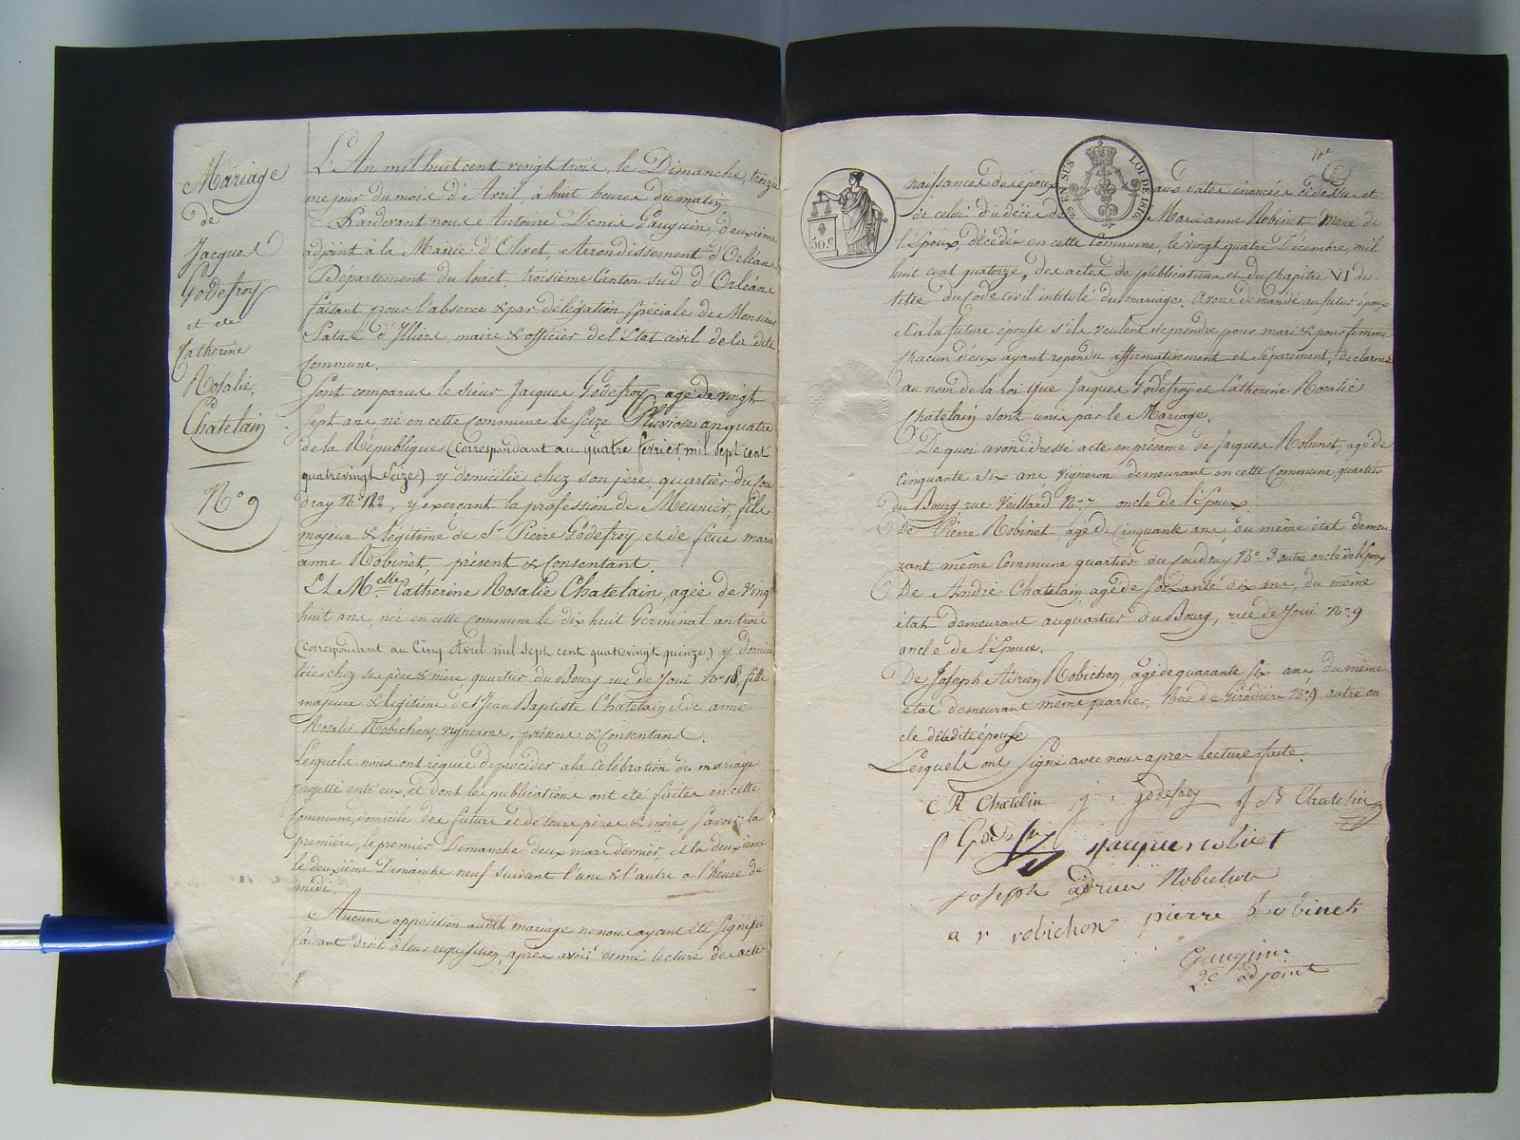 Mariage
de
Jacques
Godefroy
et de
Catherine
Rosalie
Chatelain
N.o 9
L'An mil huit cent vingt trois, le Dimanche, treize
me jour du mois d'Avril, à huit heures du matin
Pardevant nous Antoine Denis Gauguin, deuxième
adjoint à la Mairie d'Olivet, Arrondissement d'Orléans
Département du Loiret, troisième Canton Sud d'Orléans
faisant pour l'absence & par délégation spéciale de Monsieur
d'Illiers maire & officier de l'Etat civil de la dite
Commune.
Sont comparus le sieur Jacques Godefroy agé de vingt
sept ans né en cette Commune le seize Pluviose an quatre
de la République (correspondant au quatre février mil sept cent
quatrevingt seize) y domicilié chez son père quartier du Cou
dray N.o 122, y exerçant la profession de Meunier, fils
majeur & légitime de S.r Pierre Godefroy et de feue marie
anne Robinet, présent & consentant.
Et M.elle Catherine Rosalie Chatelain, agée de vingt
huit ans, née en cette commune le dix huit Germinal an trois
(correspondant au Cinq Avril mil sept cent quatrevingt quinze) y domici
liée chez ses père & mère quartier du Bourg rue de Joui N.o 18, fille
majeure & légitime de S.r Jean Baptiste Chatelain et de anne
Rosalie Robichon, vignerons, présens & Consentans.
Lesquels nous ont requis de procéder a la Célébration du mariage
projetté entr'eux, et dont les publications ont été faites en cette
Commune, domicile des futurs et de leurs pères & mères, savoir la
première, le premier Dimanche deux mars dernier, et la deuxième
le deuxième Dimanche neuf suivant l'une & l'autre a l'heure de
midi.
Aucune opposition audit mariage ne nous ayant été signifiée
faisant droit à leur réquisition, après avoir donné lecture des actes
10e
30 c
EN SUS
LOI DE 1816
naissances des époux aux dates énoncées ci dessus et
de celui du décès de Marianne Robinet Mère de
l'époux, décédée en cette Commune, le vingt quatre Décembre mil
huit cent quatorze, des actes de publications et du Chapitre VI du
titre du Code civil intitulé du mariage. avons demandé au futur époux
et a la future épouse s'ils veulent se prendre pour mari & pour femme
chacun d'eux ayant répondu affirmativement et séparément, Déclarons
au nom de la loi que Jacques Godefroy et Catherine Rosalie
Chatelain sont unis par le Mariage.
De quoi avons dressé acte en présence de Jacques Robinet, agé de
Cinquante six ans, Vigneron demeurant en cette Commune quartier
du Bourg rue Veillard N.o oncle de l'Epoux
De Pierre Robinet agé de Cinquante ans du même état demeu
rant même Commune quartier du Coudray N.o 3 autre oncle de l'époux
De André Chatelain agé de Soixante dix ans, du même
état demeurant au quartier du Bourg, rue de Joui N.o 9
oncle de l'Epouse.
De Joseph Adrien Robichon, agé de quarante six ans, du même
état demeurant même quartier, N.o 9 autre on
cle de ladite épouse
Lesquels ont Signé avec nous après lecture faite.
C R Chatelin j godefroy J B Chatelin
P God
jacques robinet
joseph adrien Robichon
a r robichon pierre Robinet
Gauguin
2e adjoint